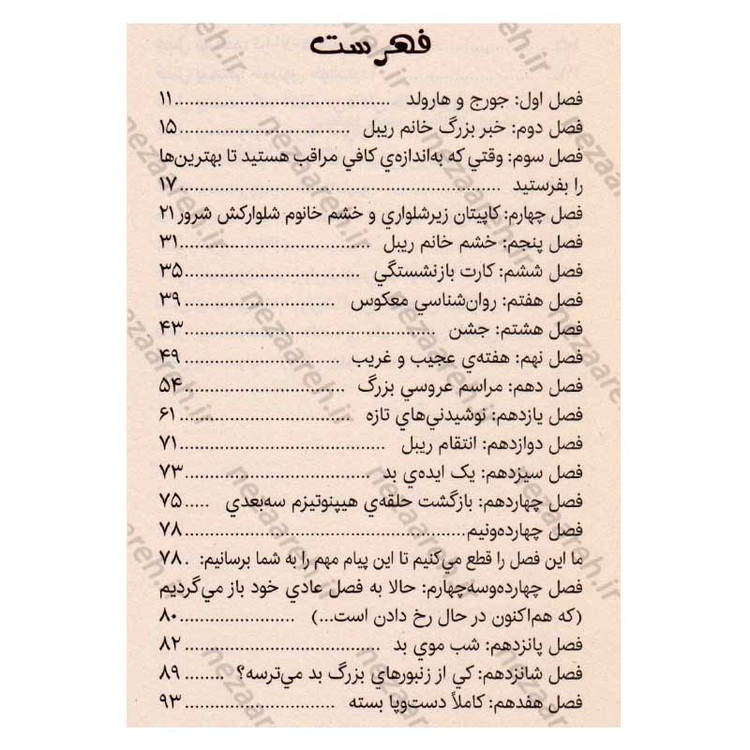 فهرست
فصل اول: جورج و هارولد ........ ۱۱
فصل دوم: خبر بزرگ خانم ریبل ........ ۱۵
فصل سوم: وقتي که به‌اندازه‌ي کافي مراقب هستید تا بهترین‌ها
را بفرستید ........ ۱۷
فصل چهارم: کاپیتان زیرشلواري و خشم خانوم شلوارکش شرور ۲۱
فصل پنجم: خشم خانم ریبل ........ ۳۱
فصل ششم: کارت بازنشستگي ........ ۳۵
فصل هفتم: روان‌شناسي معکوس ........ ۳۹
فصل هشتم: جشن ........ ۴۳
فصل نهم: هفته‌ي عجیب و غریب ........ ۴۹
فصل دهم: مراسم عروسي بزرگ ........ ۵۴
فصل یازدهم: نوشیدني‌هاي تازه ........ ۶۱
فصل دوازدهم: انتقام ریبل ........ ۷۱
فصل سیزدهم: یک ایده‌ي بد ........ ۷۳
فصل چهاردهم: بازگشت حلقه‌ي هیپنوتیزم سه‌بعدي ..... ۷۵
فصل چهارده‌ونیم ........ ۷۸
ما این فصل را قطع مي‌کنیم تا این پیام مهم را به شما برسانیم: . ۷۸
فصل چهارده‌وسه‌چهارم: حالا به فصل عادي خود باز مي‌گردیم
(که هم‌اکنون در حال رخ دادن است...) ........ ۸۰
فصل پانزدهم: شب موي بد ........ ۸۲
فصل شانزدهم: کي از زنبورهاي بزرگ بد مي‌ترسه؟ ........ ۸۹
فصل هفدهم: کاملاً دست‌وپا بسته ........ ۹۳
nezaareh.ir